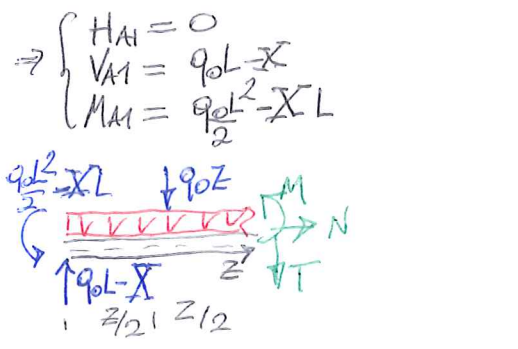 ⇒ { H_{A1} = 0
V_{A1} = q₀L - X
M_{A1} = q₀L²/2 - XL
q₀L²/2 - XL
q₀Z
M
N
Z
T
q₀L - X
Z/2 Z/2